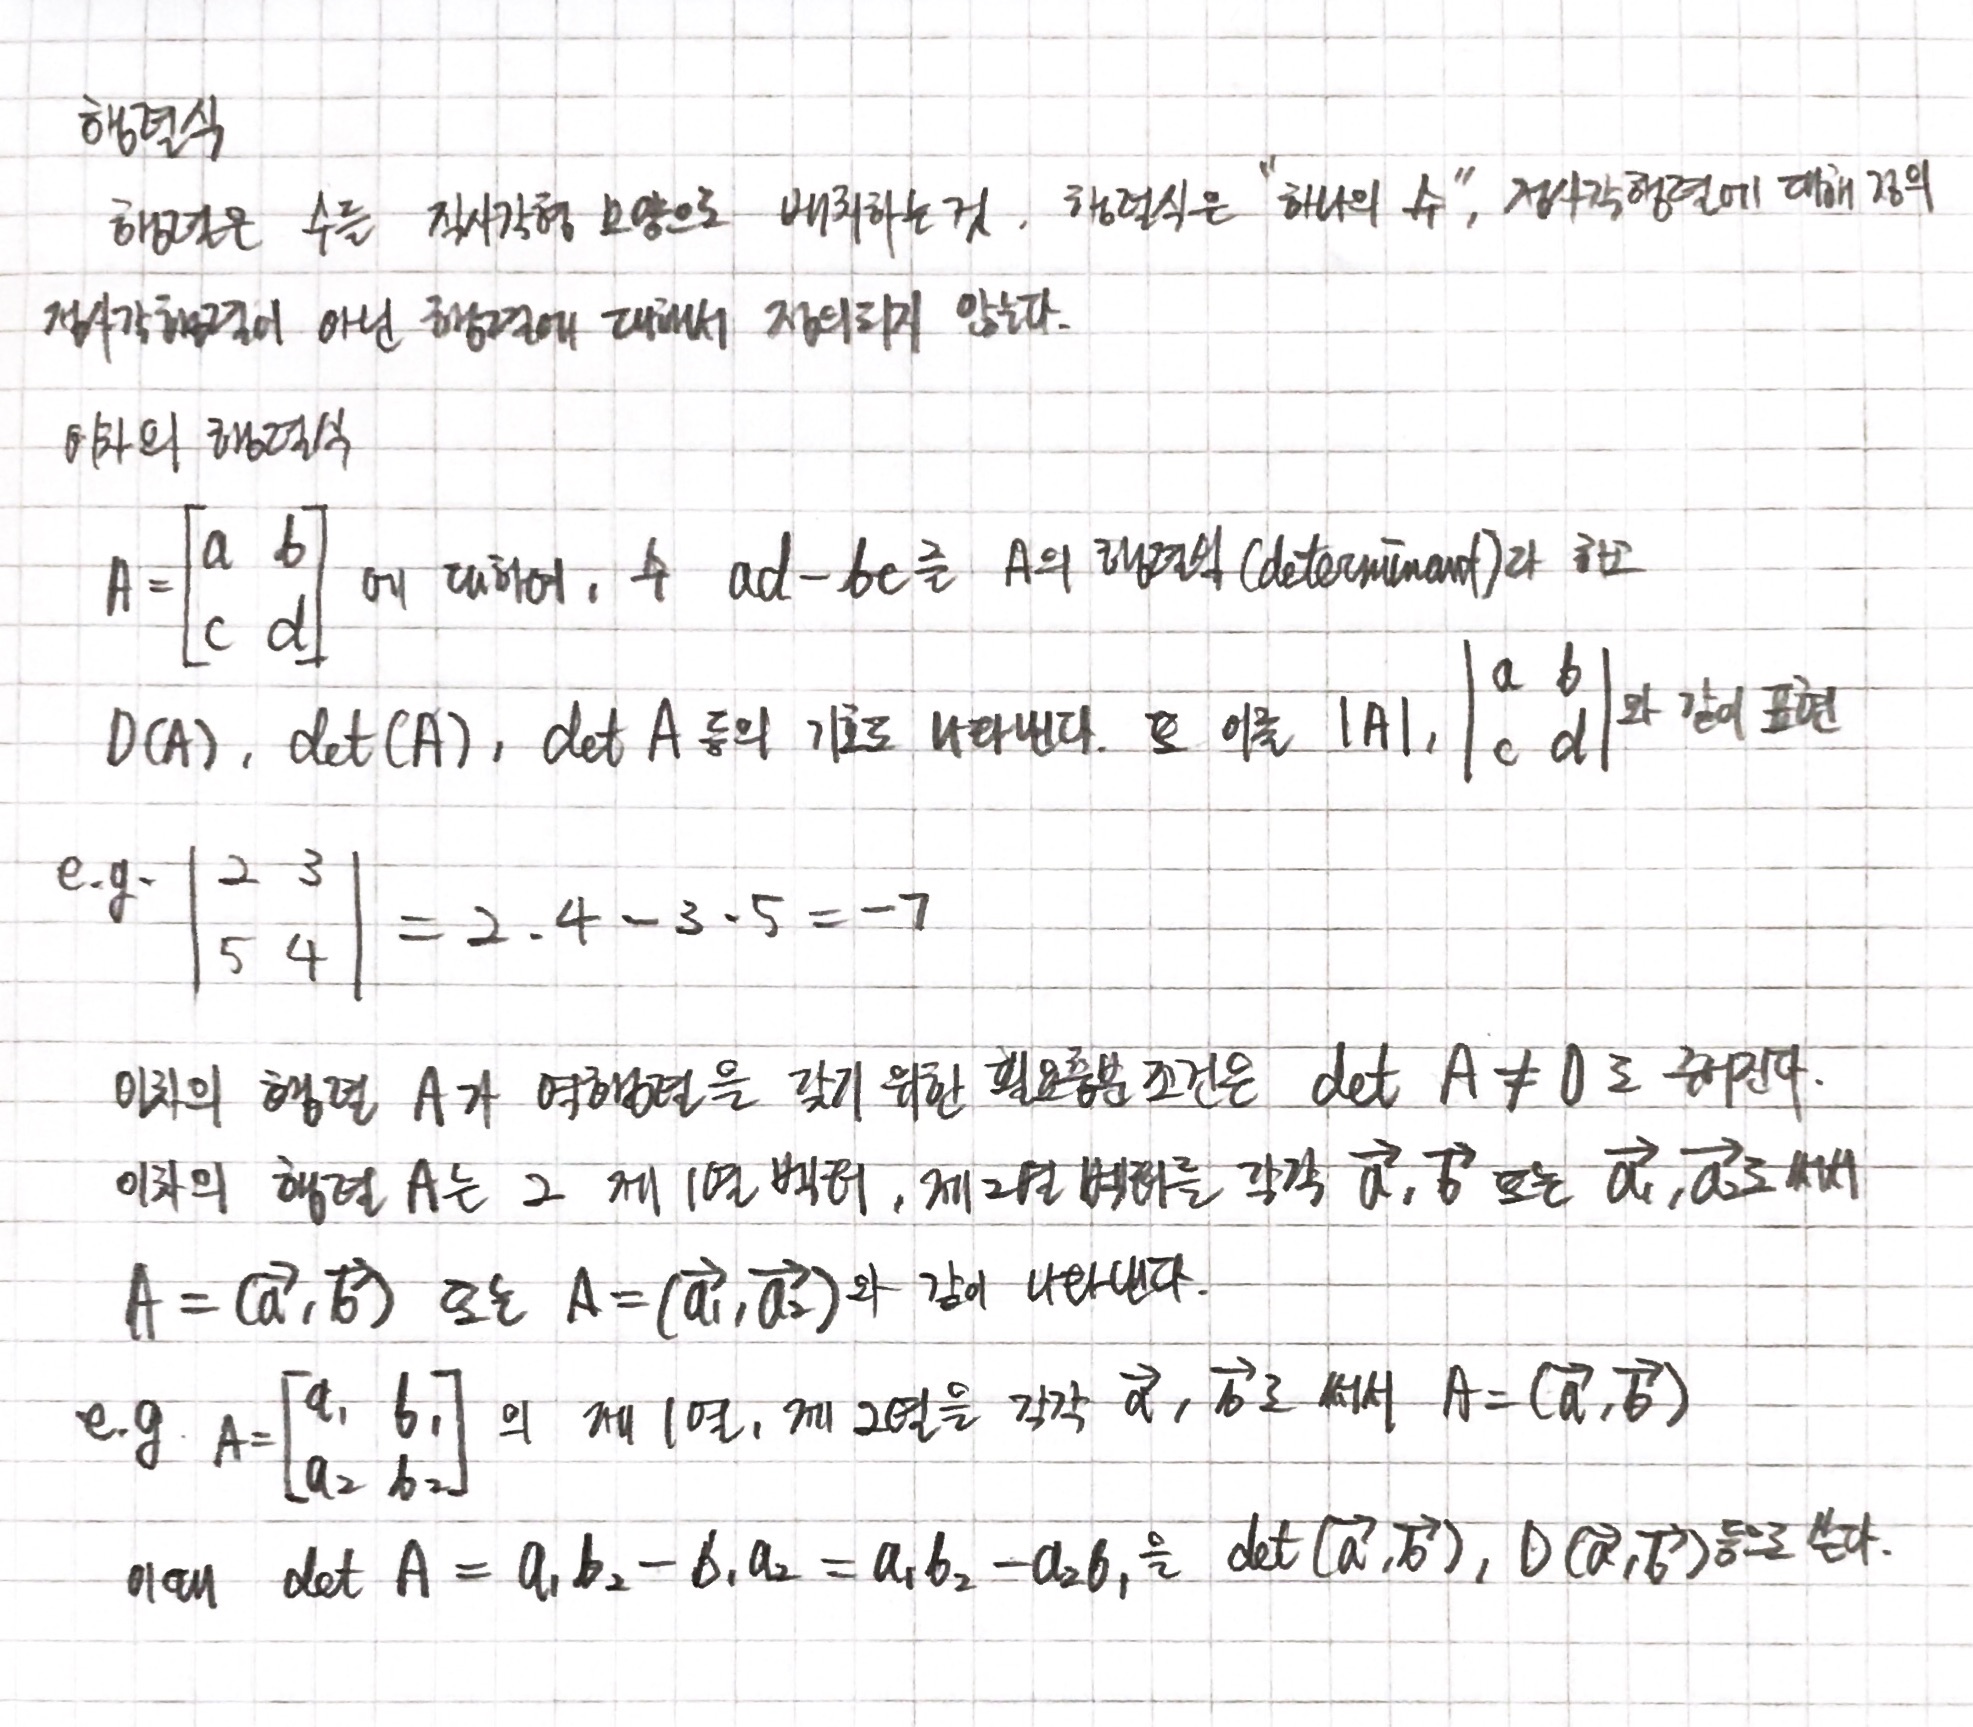 행렬식
행렬은 수를 직사각형 모양으로 배치하는 것. 행렬식은 "하나의 수", 정사각행렬에 대해 정의
정사각행렬이 아닌 행렬에 대해서 정의되지 않는다.
이차의 행렬식
A = [a b; c d] 에 대하여, 수 ad - bc를 A의 행렬식(determinant)라 하고
D(A), det(A), det A 등의 기호로 나타낸다. 또 이를 |A|, |a b; c d|와 같이 표현
e.g. |2 3; 5 4| = 2·4 - 3·5 = -7
이차의 행렬 A가 역행렬을 갖기 위한 필요충분조건은 det A ≠ 0로 주어진다.
이차의 행렬 A는 그 제1열 벡터, 제2열 벡터를 각각 a⃗, b⃗ 또는 a⃗₁, a⃗₂로 써서
A = (a⃗, b⃗) 또는 A = (a⃗₁, a⃗₂)와 같이 나타낸다.
e.g. A = [a₁ b₁; a₂ b₂] 의 제1열, 제2열을 각각 a⃗, b⃗로 써서 A = (a⃗, b⃗)
이때 det A = a₁b₂ - b₁a₂ = a₁b₂ - a₂b₁을 det(a⃗, b⃗), D(a⃗, b⃗)등으로 쓴다.